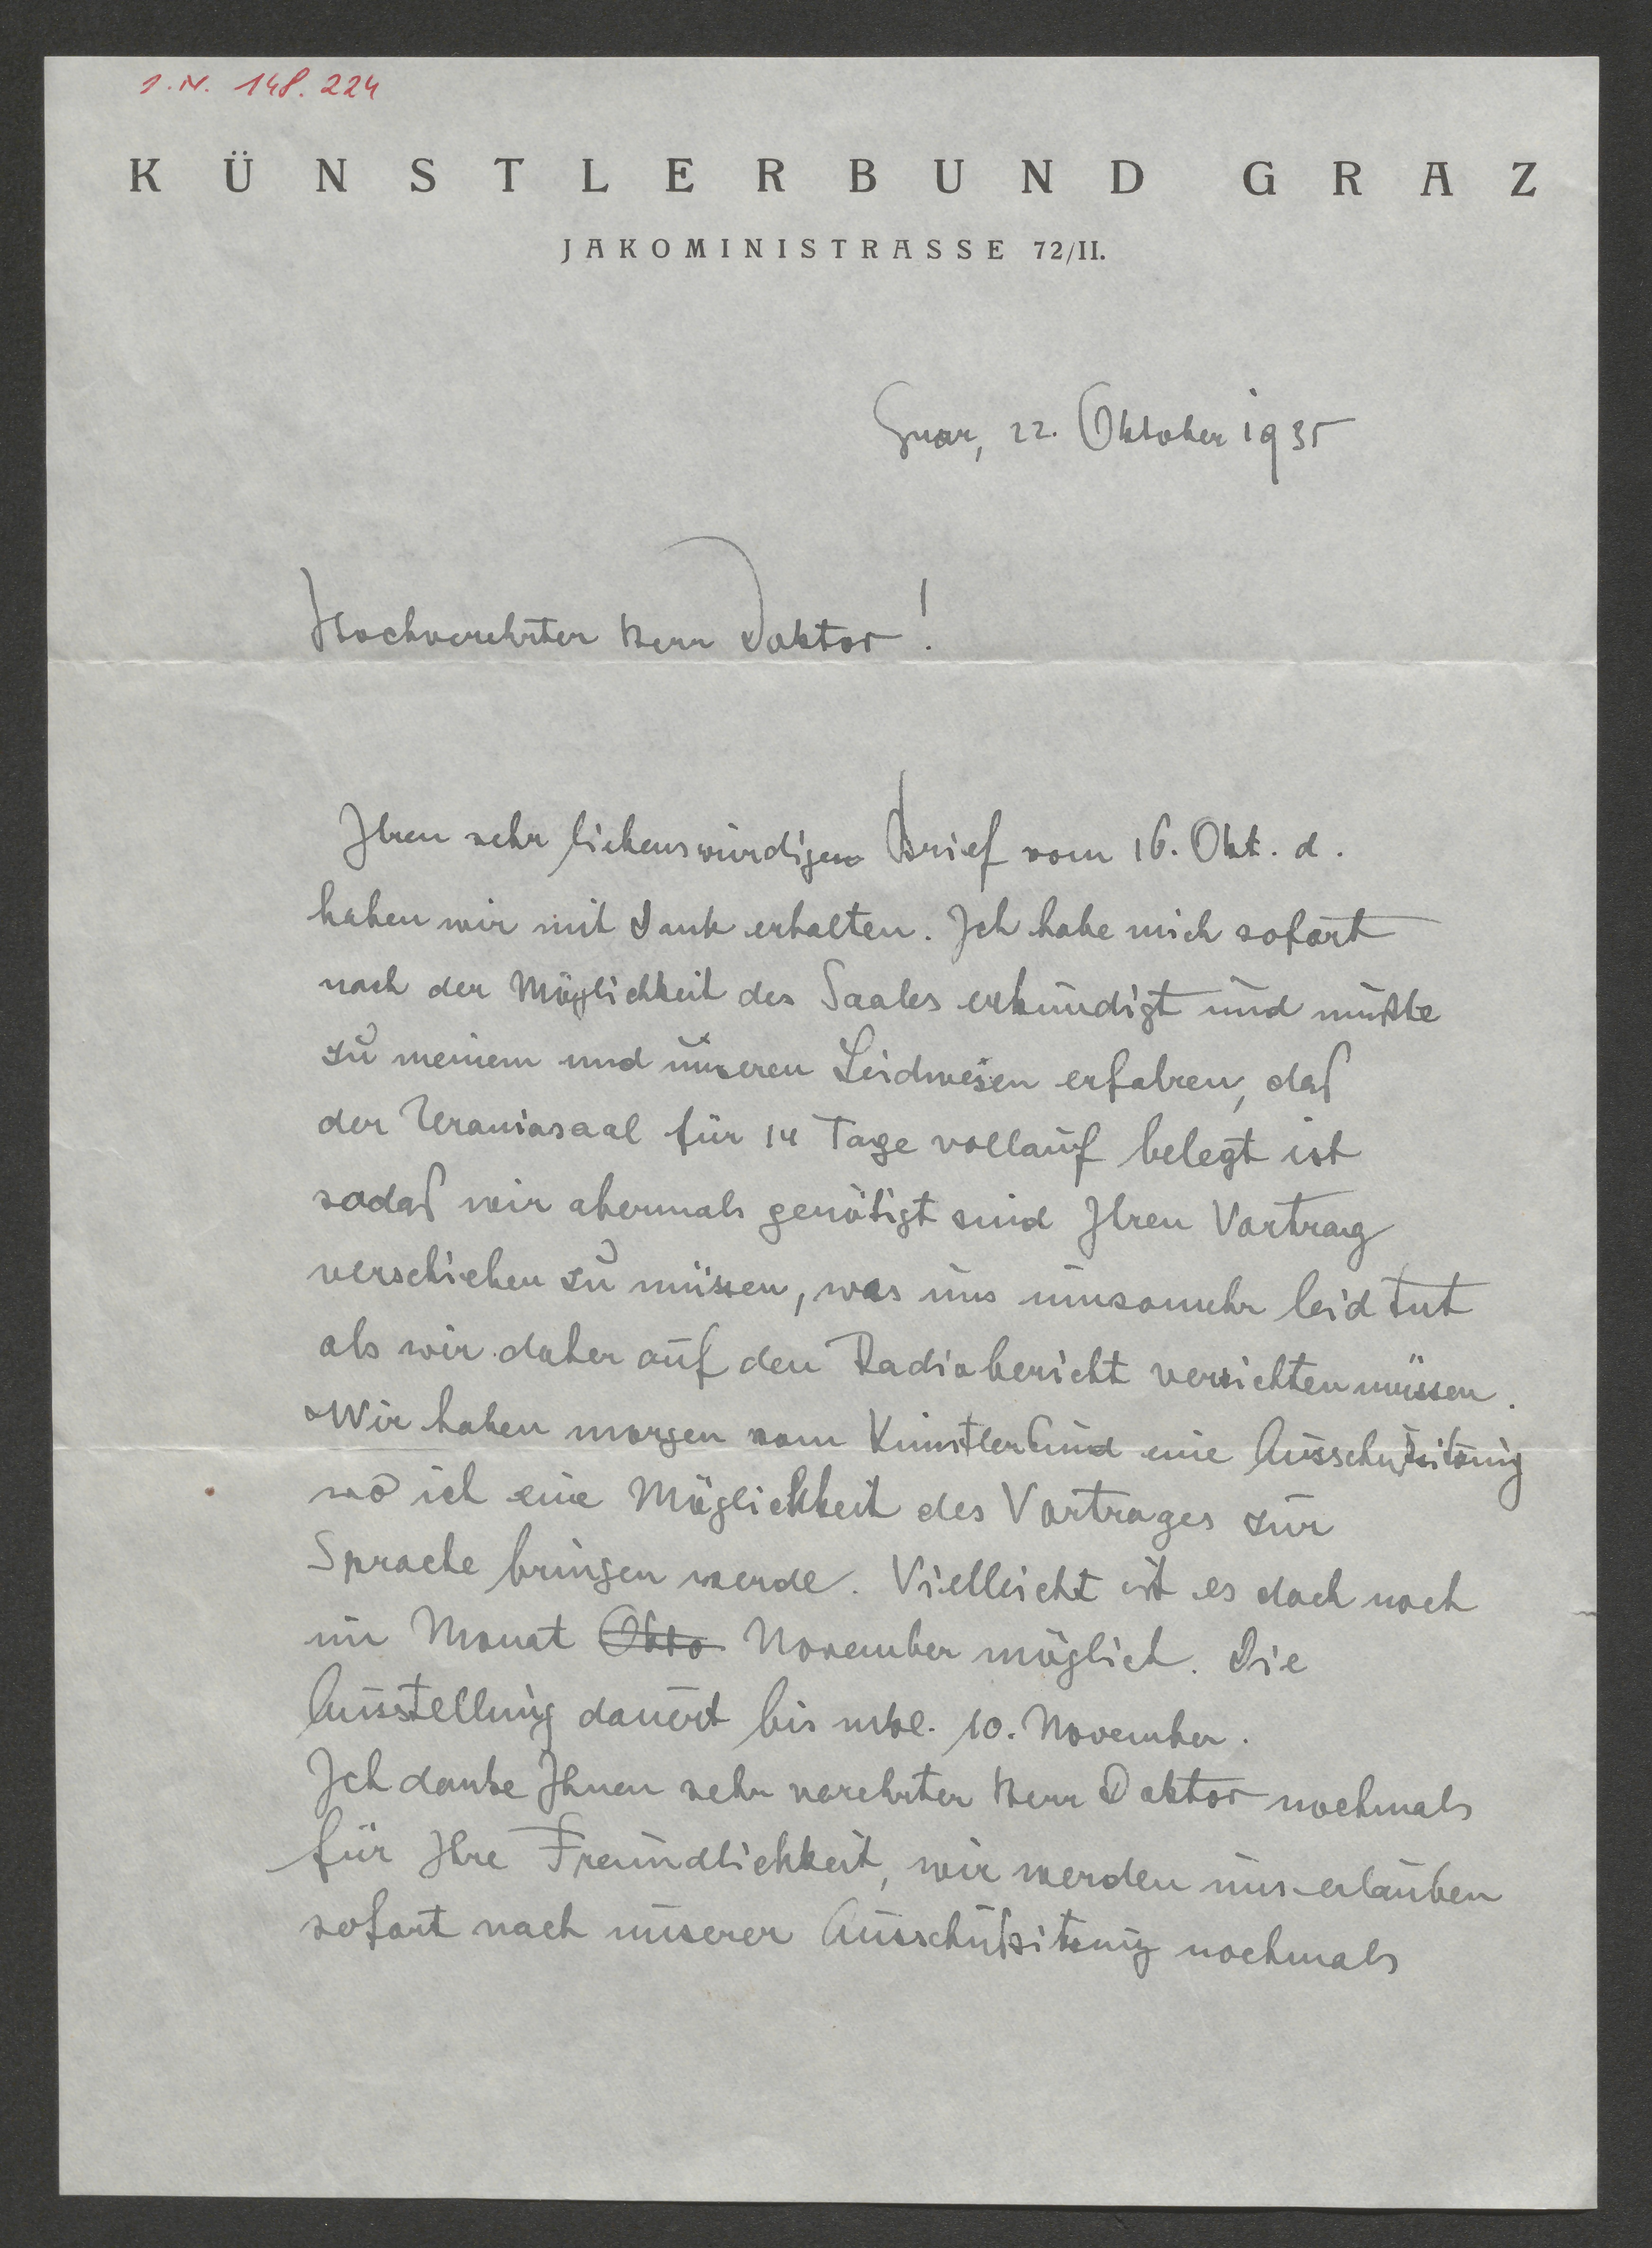 I.N. 148.224
KÜNSTLERBUND GRAZ
JAKOMINISTRASSE 72/II.
Graz, 22. Oktober 1935
Hochverehrter Herr Doktor!
Ihren sehr liebenswürdigen Brief vom 16. Okt. d.
haben wir mit Dank erhalten. Ich habe mich sofort
nach der Möglichkeit des Saales erkundigt und mußte
zu meinem und unseren Leidwesen erfahren, daß
der Uraniasaal für 14 Tage vollauf belegt ist
sodaß wir abermals genötigt sind Ihren Vortrag
verschieben zu müssen, was uns umsomehr leid tut
als wir daher auf den Radiobericht verzichten müssen.
Wir haben morgen vom Künstlerbund eine Ausschußsitzung
wo ich eine Möglichkeit des Vortrages zur
Sprache bringen werde. Vielleicht ist es doch noch
im Monat Okto November möglich. Die
Ausstellung dauert bis inkl. 10. November.
Ich danke Ihnen sehr verehrter Herr Doktor nochmals
für Ihre Freundlichkeit, wir werden uns erlauben
sofort nach unserer Ausschußsitzung nochmals